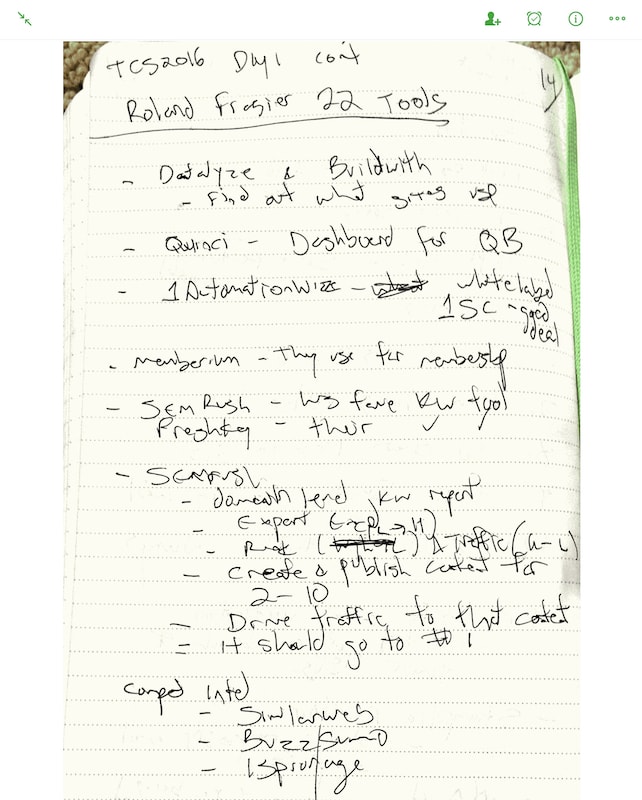 TCS2016 Day 1 conf
14
Roland Frasier 22 Tools
- Datalyze & Buildwith
- Find out what sites use
- Quinci - Dashboard for QB
- 1AutomationWiz - white label
1SC - good
deal
- memberium - they use for membership
- SEMRush - his fave KW tool
- their
- SEMrush
- domain level KW report
- Export (L → H)
- Rank ( ) & Traffic (H-L)
- create & publish content for
2-10
- Drive traffic to that content
= it should go to #1
Comped Intel
- Similarweb
- BuzzSumo
- ISpionage